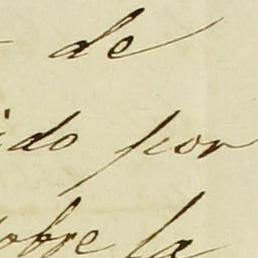 de
ido por
sobre la